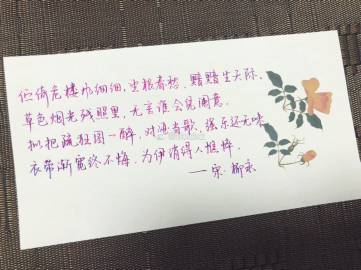 伫倚危楼风细细,望极春愁,黯黯生天际。
草色烟光残照里,无言谁会凭阑意。
拟把疏狂图一醉,对酒当歌,强乐还无味。
衣带渐宽终不悔,为伊消得人憔悴。
——宋·柳永